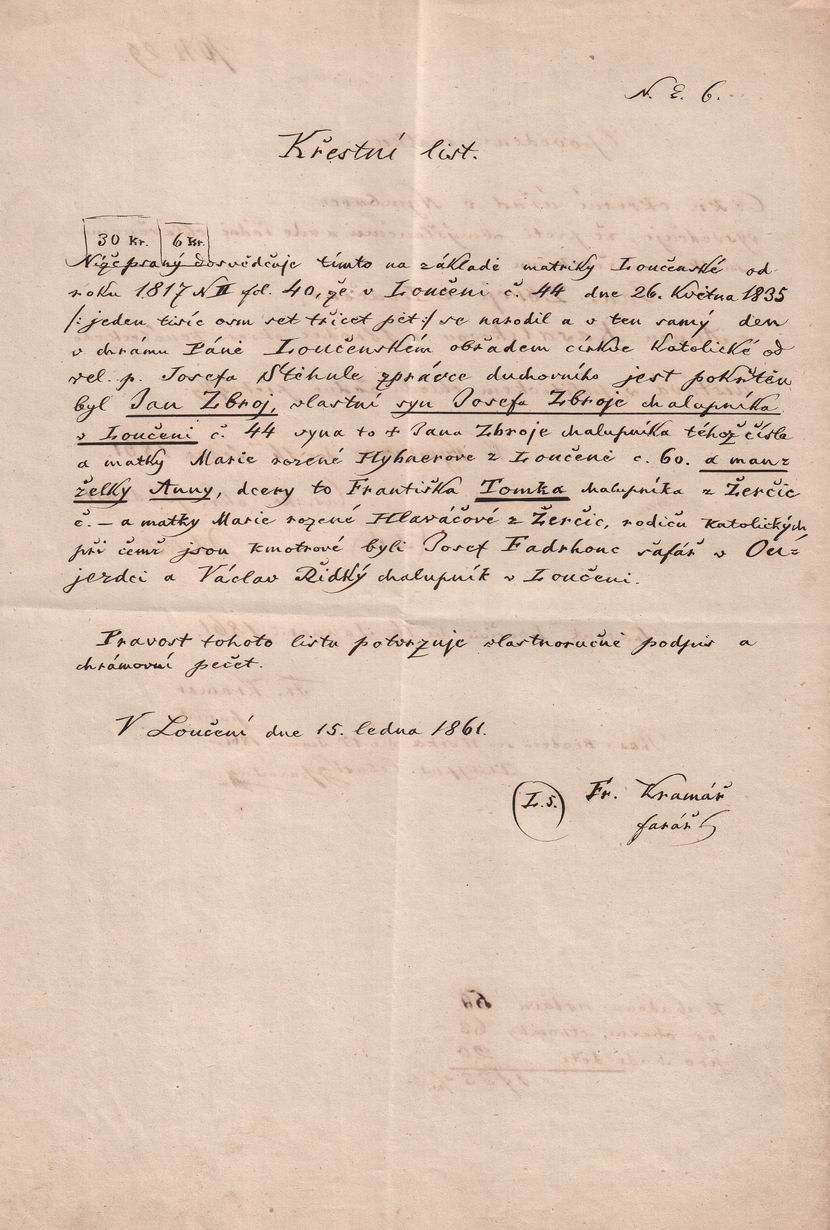 N. E. 6.
Křestní list.
30 kr. 6 kr.
Nížepsaný dosvědčuje tímto na základě matriky Loučenské od
roku 1817 N II fol. 40, že v Loučeni č. 44 dne 26. Května 1835
/: jeden tisíc osm set třicet pět :/ se narodil a v ten samý den
v chrámu Páně Loučenském obřadem církve Katolické od
vel. p. Josefa Stěhule zprávce duchovního jest pokřtěn
byl Jan Zbroj, vlastní syn Josefa Zbroje chalupníka
v Loučeni č. 44 syna to + Jana Zbroje chalupníka téhož čísla
a matky Marie rozené Hybnerove z Loučeně č. 60. a man-
želky Anny, dcery to Františka Tomka chalupníka z Žerčic
č. — a matky Marie rozené Hlaváčové z Žerčic, rodiču katolických
při čemž jsou kmotrové byli Josef Fadrhonc šafář v Ou-
jezdci a Václav Řidký chalupník v Loučeni.
Pravost tohoto listu potvrzuje vlastnoručně podpis a
chrámovní pečet.
V Loučení dne 15. ledna 1861.
L. S. Fr. Kramář
farář